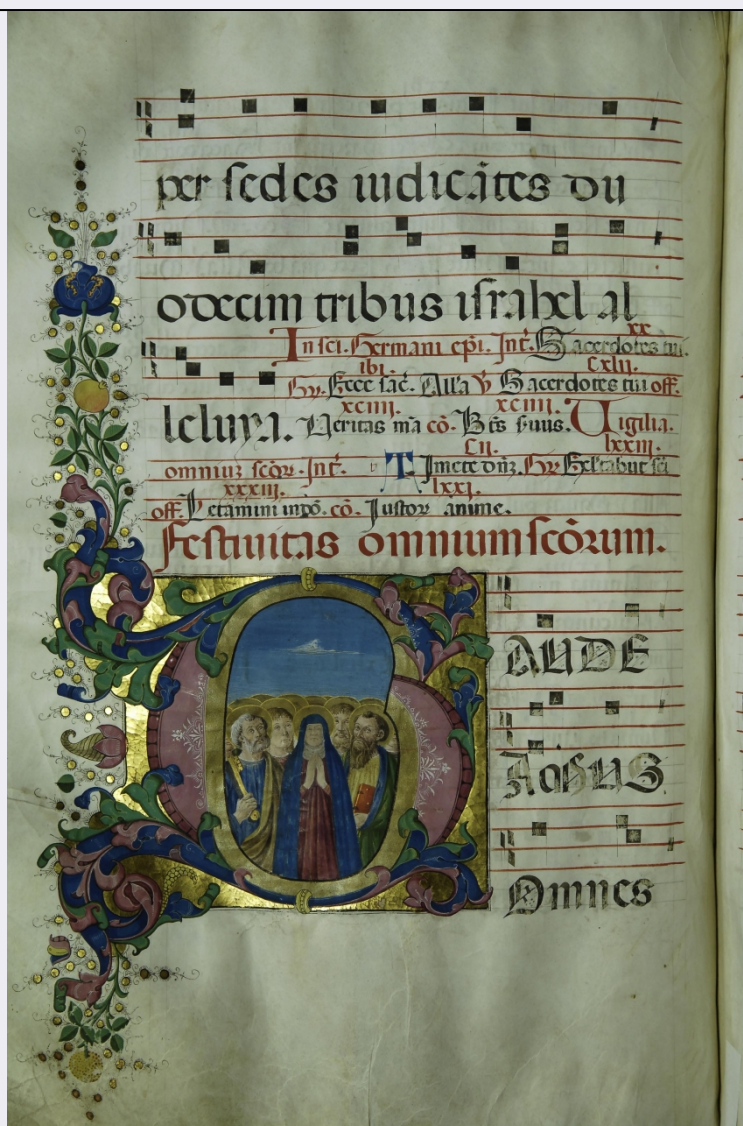 per sedes iudicātes du
odecim tribus israhel al
xx
In sci. Germani epi. Int. Sacerdotes tui.
ibi. cxlii.
Gr. Ecce sac. Alla ℣ Sacerdotes tui off.
xciiii. xciiii.
leluya. Veritas mā cō. Bt̄s s̄uus. Uigilia.
cii. lxxiii.
omniuʒ scōꝝ. Int. Timete dn̄ʒ. Gr Exltabūt sci
xxxiii. lxxi.
off. Letamini indō. cō. Iustoꝝ anime.
Festiuitas omnium scōrum.
AUDE
AOBUS
Omnes